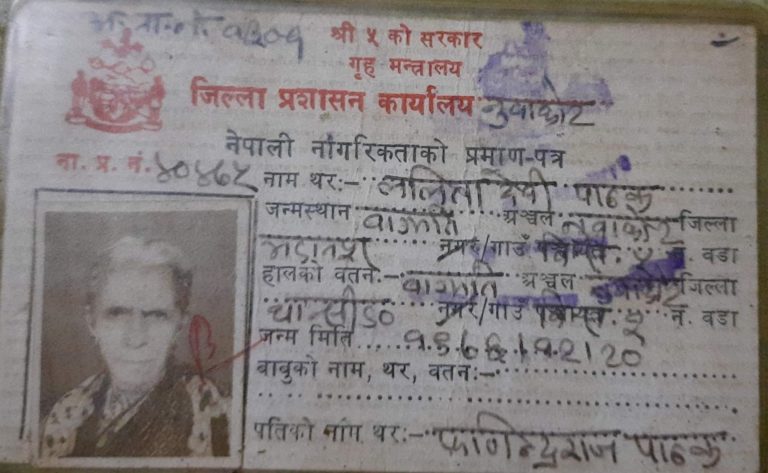 श्री ५ को सरकार
गृह मन्त्रालय
जिल्ला प्रशासन कार्यालय नुवाकोट
नेपाली नागरिकताको प्रमाण-पत्र
ना. प्र. नं. ४०४६५
नाम थर:- ललिता देवी पाठक
जन्मस्थान वाग्मती अञ्चल नुवाकोट जिल्ला
नगर/गाउँ ५ नं. वडा
हालको वतन:- वाग्मती अञ्चल नुवाकोट जिल्ला
नगर/गाउँ ५ नं. वडा
जन्म मिति १९७६।१२।२०
बाबुको नाम, थर, वतन:-
पतिको नाम थर:- फणिन्द्रराज पाठक